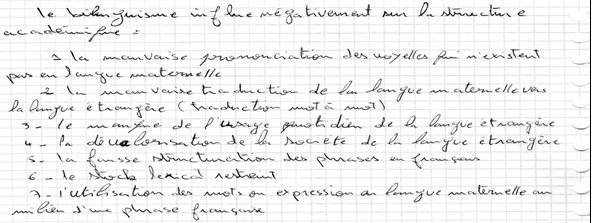 le bilinguisme influe négativement sur la structure
académique :
1 la mauvaise prononciation des voyelles qui n'existent
pas en langue maternelle
2 la mauvaise traduction de la langue maternelle vers
la langue étrangère (traduction mot à mot)
3 - le manque de l'usage quotidien de la langue étrangère
4 - la dévalorisation de la société de la langue étrangère
5 - la fausse structuration des phrases en français
6 - le stock lexical restreint
7 - l'utilisation des mots ou expression en langue maternelle au
milieu d'une phrase française